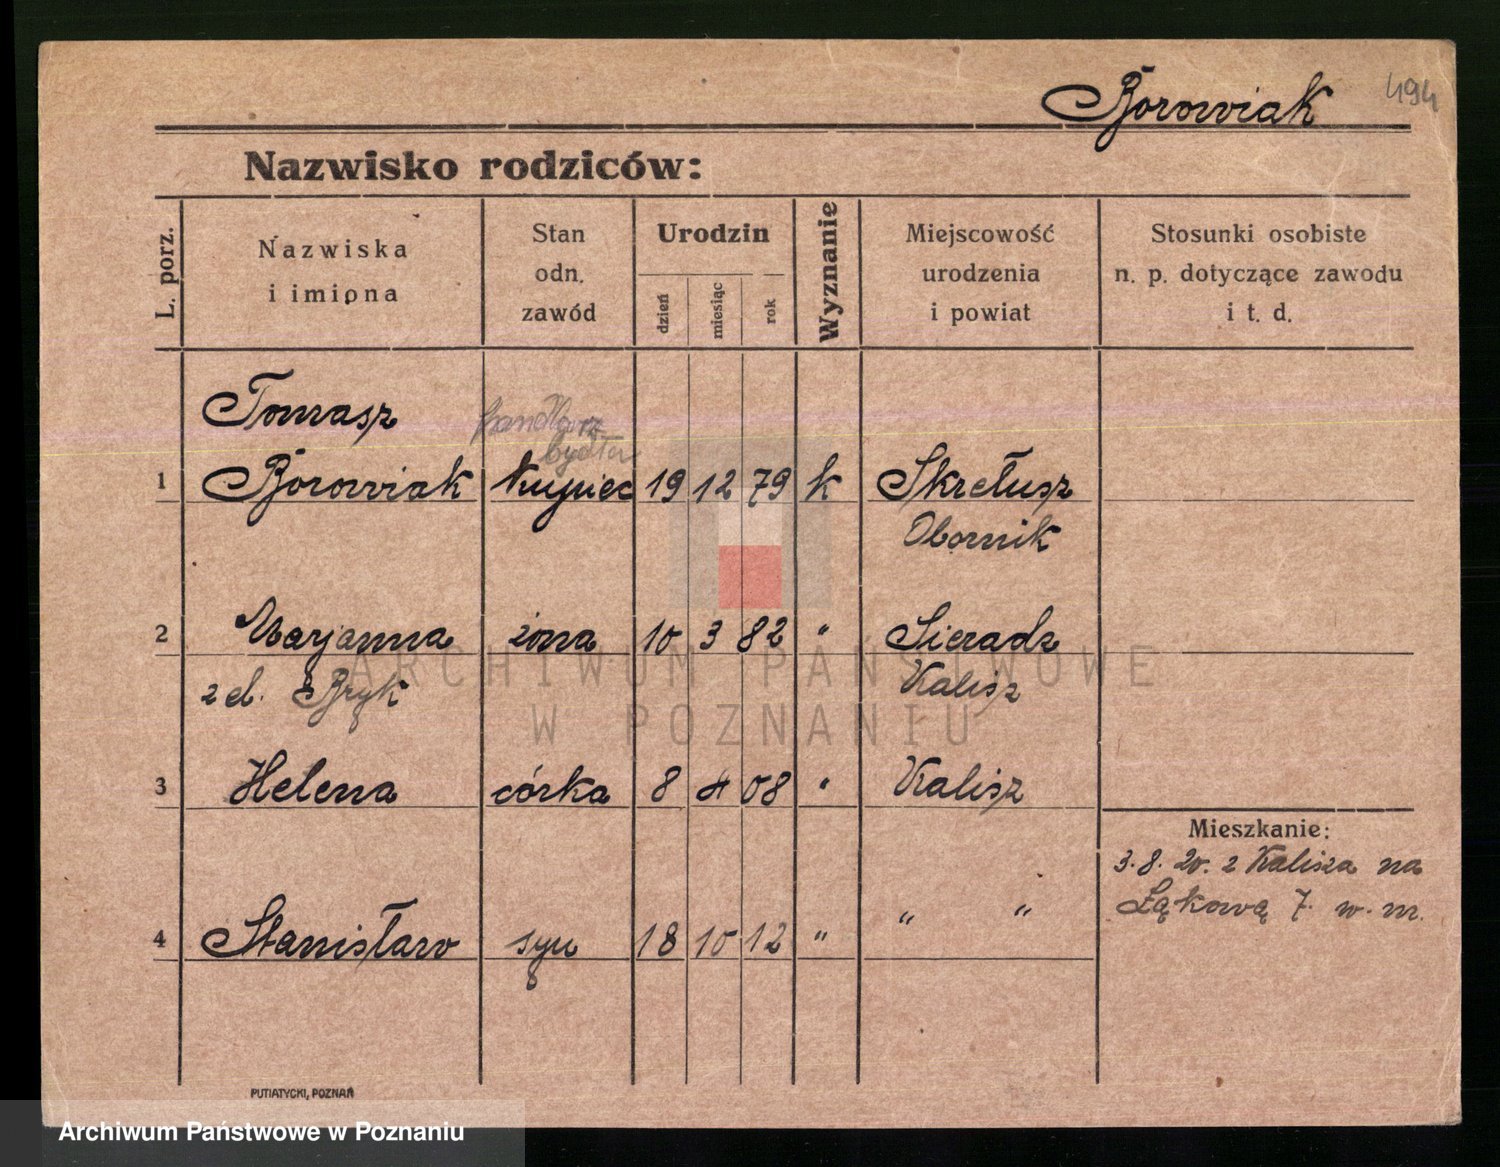 Borowiak 494
Nazwisko rodziców:
L. porz.
Nazwiska
i imiona
Stan
odn.
zawód
Urodzin
dzień
miesiąc
rok
Wyznanie
Miejscowość
urodzenia
i powiat
Stosunki osobiste
n. p. dotyczące zawodu
i t. d.
Tomasz
handlarz
bydła
1 Borowiak kupiec 19 12 79 k Skretusz
Obornik
2 Marjanna żona 10 3 82 " Sieradz
z d. Bryk Kalisz
3 Helena córka 8 4 08 " Kalisz
Mieszkanie:
3. 8. 20. z Kalisza na
Łąkową 7. w. m.
4 Stanisław syn 18 10 12 " " "
PUTIATYCKI, POZNAŃ
ARCHIWUM PAŃSTWOWE
W POZNANIU
Archiwum Państwowe w Poznaniu